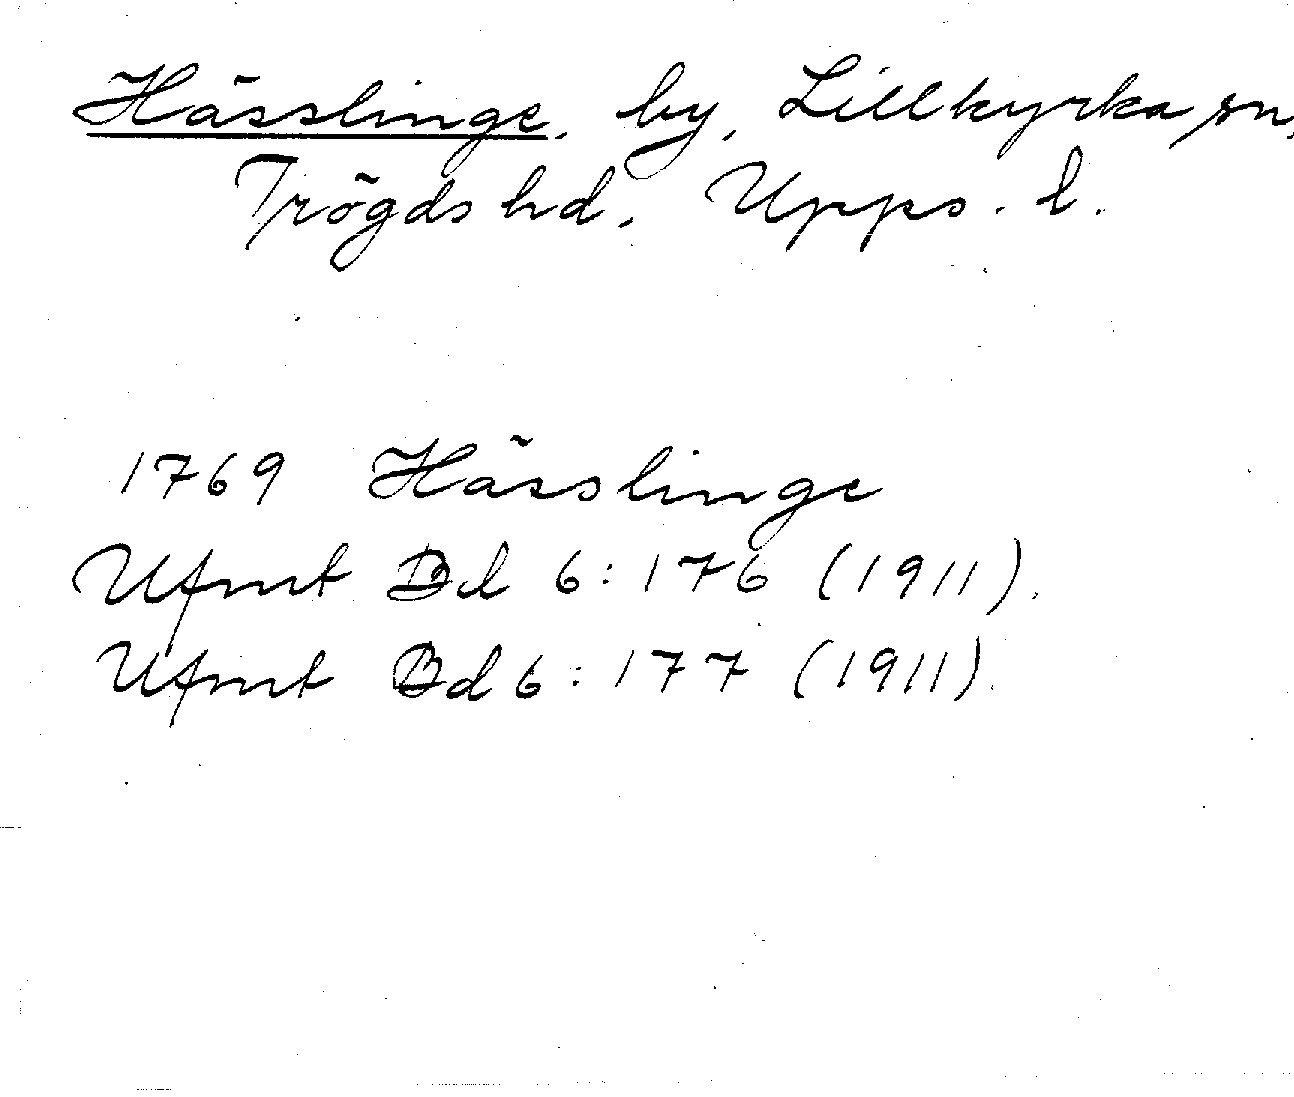 Hässlinge, by, Lillkyrka sn,
Trögds hd, Upps. l.
1769 Hässlinge
Ufmt Bd 6:176 (1911).
Ufmt Bd 6:177 (1911).